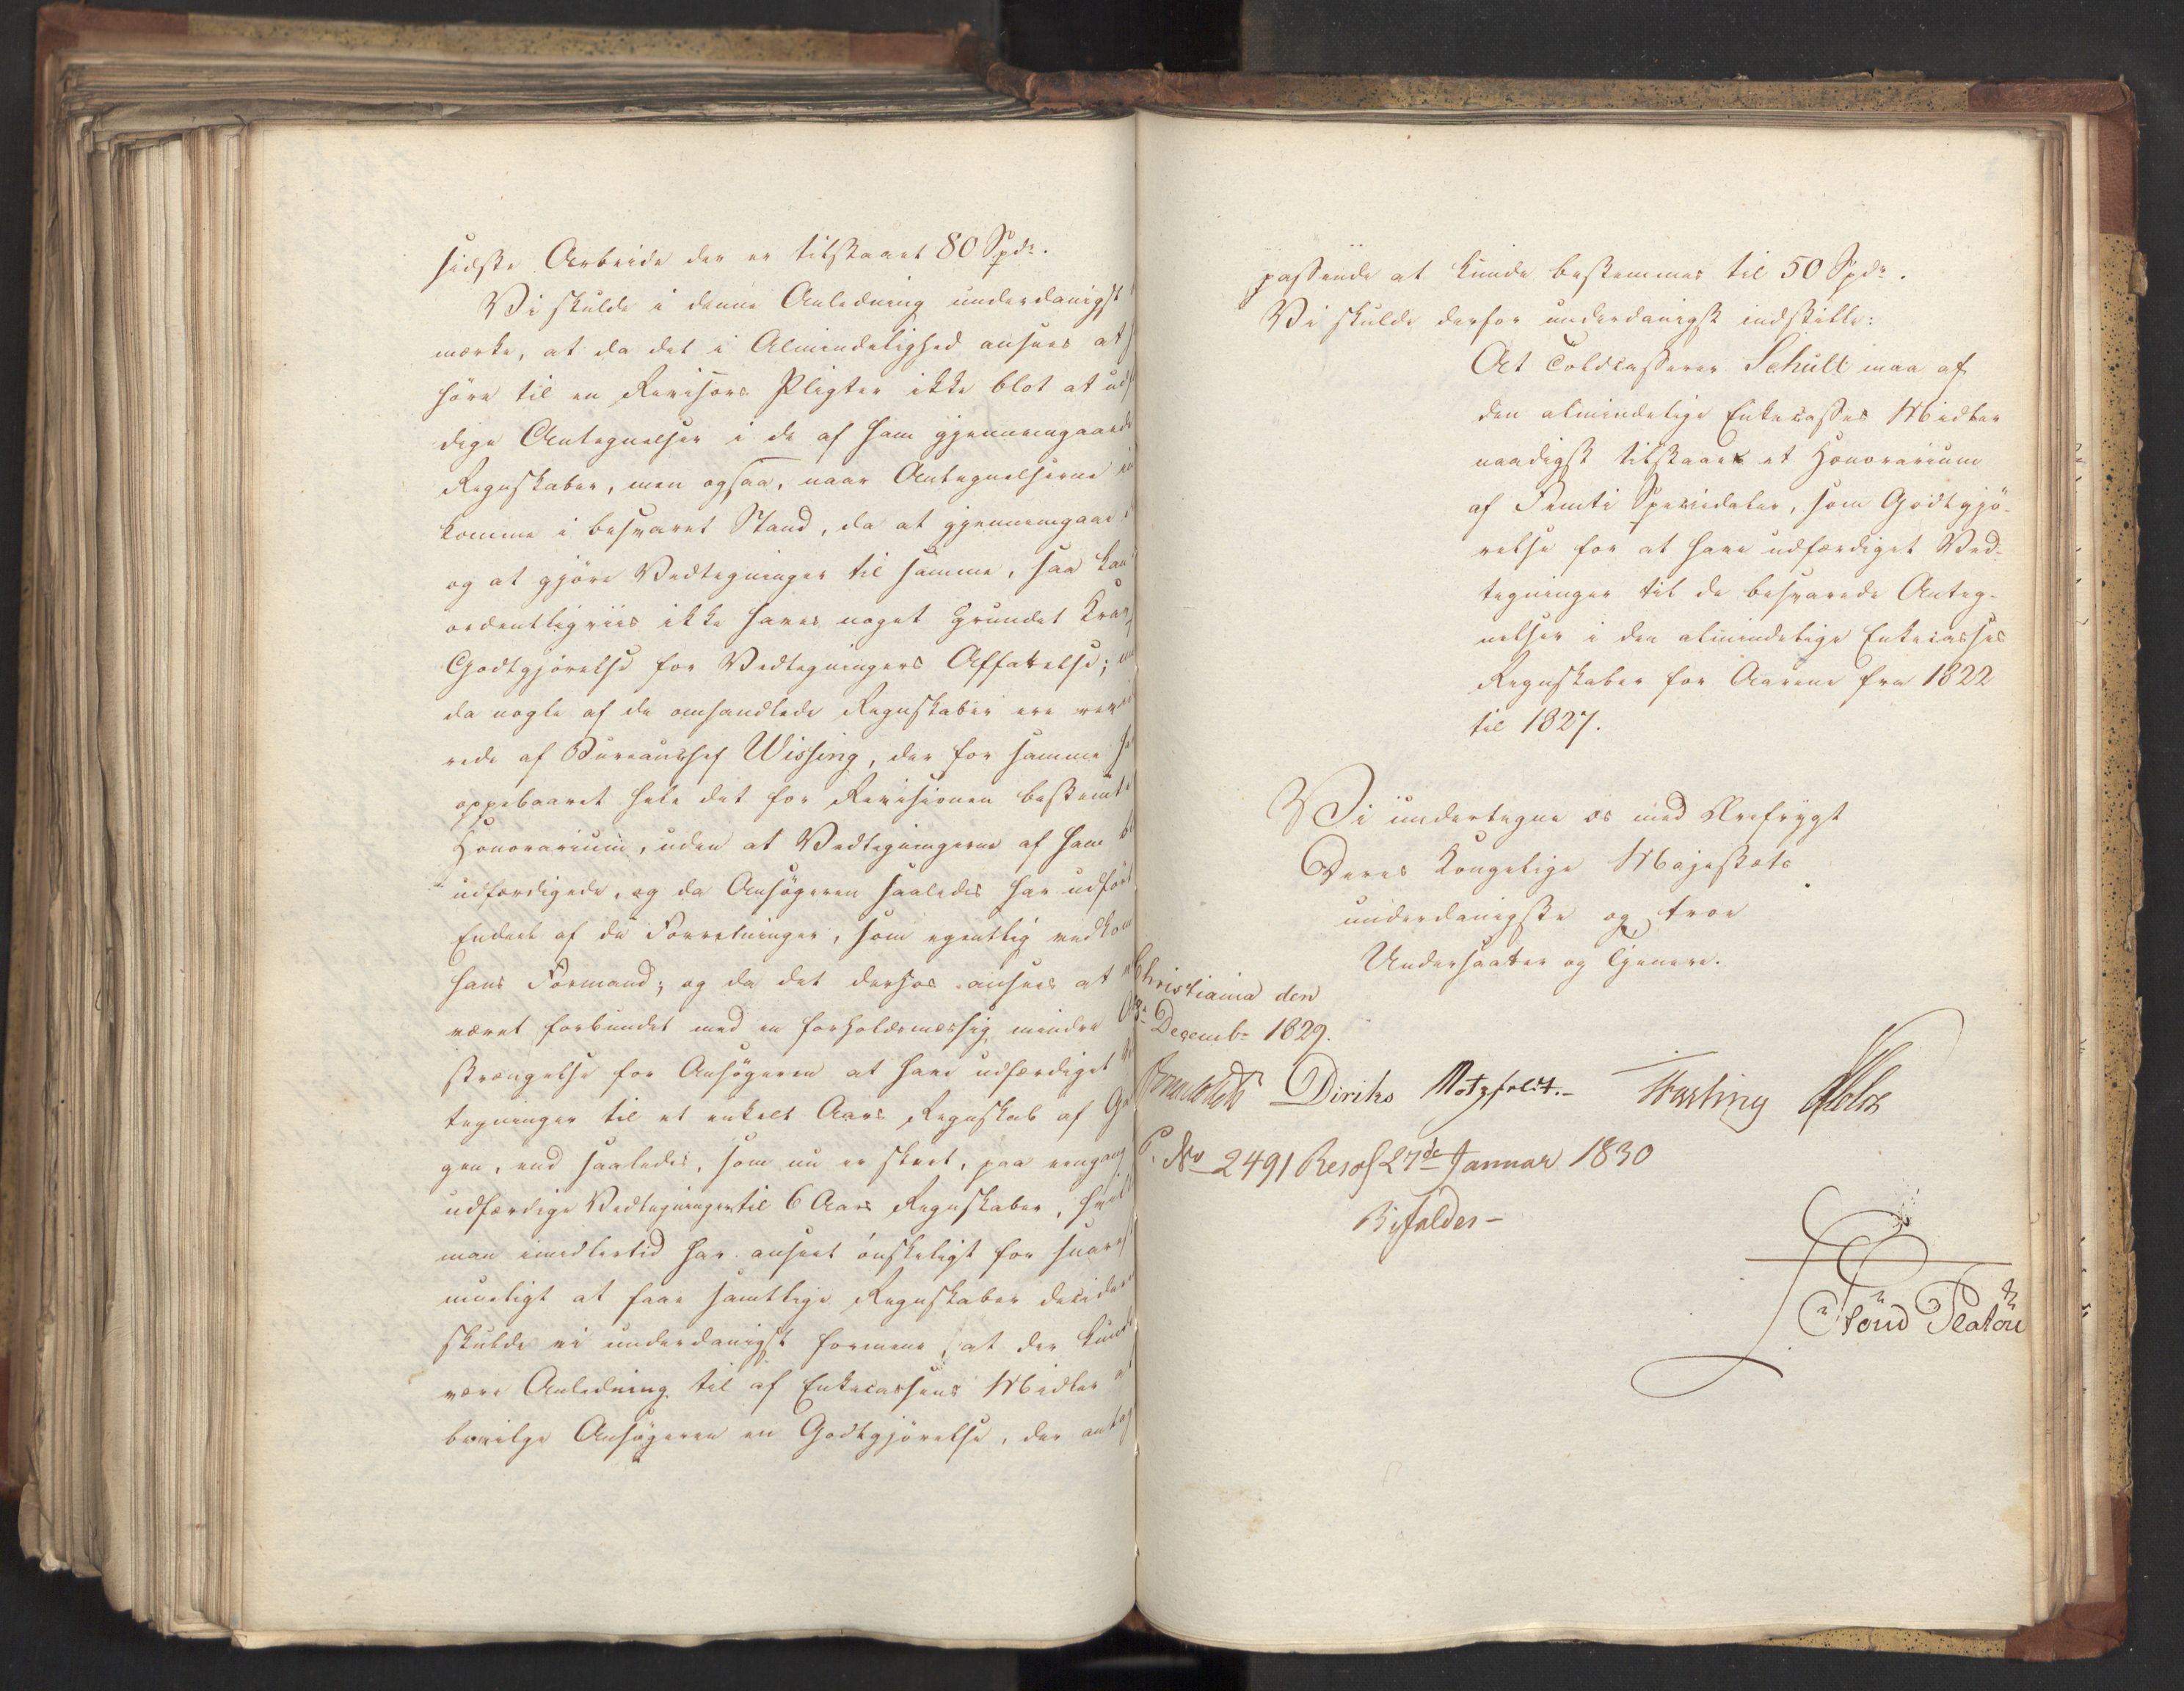 sidste Arbeide der er tilstaaet 80 Spdr.
Vi skulde i denne Anledning underdanigst
mærke, at da det i Almindelighed ansees at
høre til en Revisors Pligter ikke blot at
dige Antegnelser i de af ham gjennemgaaede
Regnskaber, men ogsaa, naar Antegnelserne
komme i besvaret Stand, da at gjennemgaae
og at gjøre Vedtegninger til samme, saa kan
ordentligviis ikke haves noget grundet Krav
Godtgjørelse for Vedtegningers Affattelse;
da nogle af de omhandlede Regnskaber ere
rede af Bureauchef Wissing, der for samme
oppebaaret hele det for Revisionen bestemte
Honorarium, uden at Vedtegningerne af ham
udfærdigede, og da Ansøgeren saaledes har udført
Endeel af de Forretninger, som egentlig
hans Formand; og da det derhos ansees at
været forbundet med en forholdsmæssig mindre
strængelse for Ansøgeren at have udfærdiget
tegninger til et enkelt Aars Regnskab af
gen, end saaledes, som nu er skeet, paa eengang
udfærdige Vedtegninger til 6 Aars Regnskaber,
man imidlertid har anseet ønskeligt for snarest
mueligt at faae samtlige Regnskaber
skulde vi underdanigst formene, at der kunde
være Anledning til af Enkecassens Midler
bevilge Ansøgeren en Godtgjørelse, der
passende at kunde bestemmes til 50 Spdr.
Vi skulde derfor underdanigst indstille:
At Toldcasserer Schult maa af
den almindelige Enkecasses Midler
naadigst tilstaaes et Honorarium
af Femti Speciedaler, som Godtgjø-
relse for at have udfærdiget Ved-
tegninger til de besvarede Anteg-
nelser i den almindelige Enkecasses
Regnskaber for Aarene fra 1822
til 1827.
Vi undertegne os med Ærefrygt
Deres Kongelige Majestæts
underdanigste og troe
Undersaatter og Tjenere.
Christiania den
Decembr 1829.
Diriks Motzfeldt. Fasting Holst
P. No 2491 Resol 27de Januar 1830
Bifaldes -
Platou